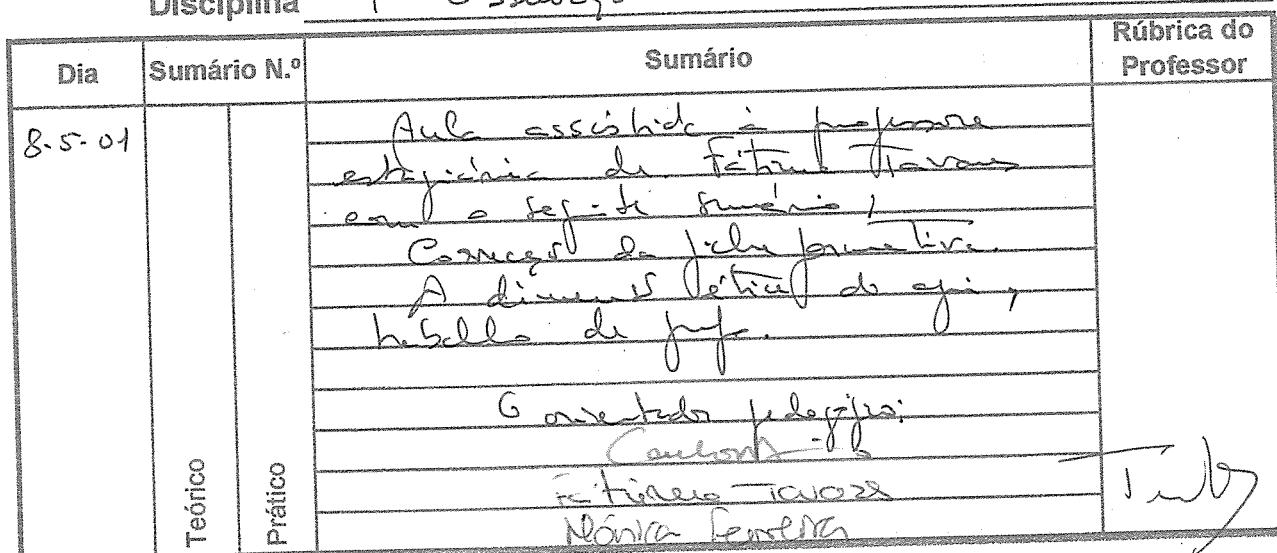 Disciplina
Dia
Sumário N.º
Sumário
Rúbrica do
Professor
8-5-01
Aula assistida à professora
estagiária de Fátima Tavares
com o seguinte sumário:
Correcção da ficha formativa.
A dimensão ética do agir,
trabalho de grupo.
O orientador pedagógico:
Fátima Tavares
Mónica Ferreira
Teórico
Prático